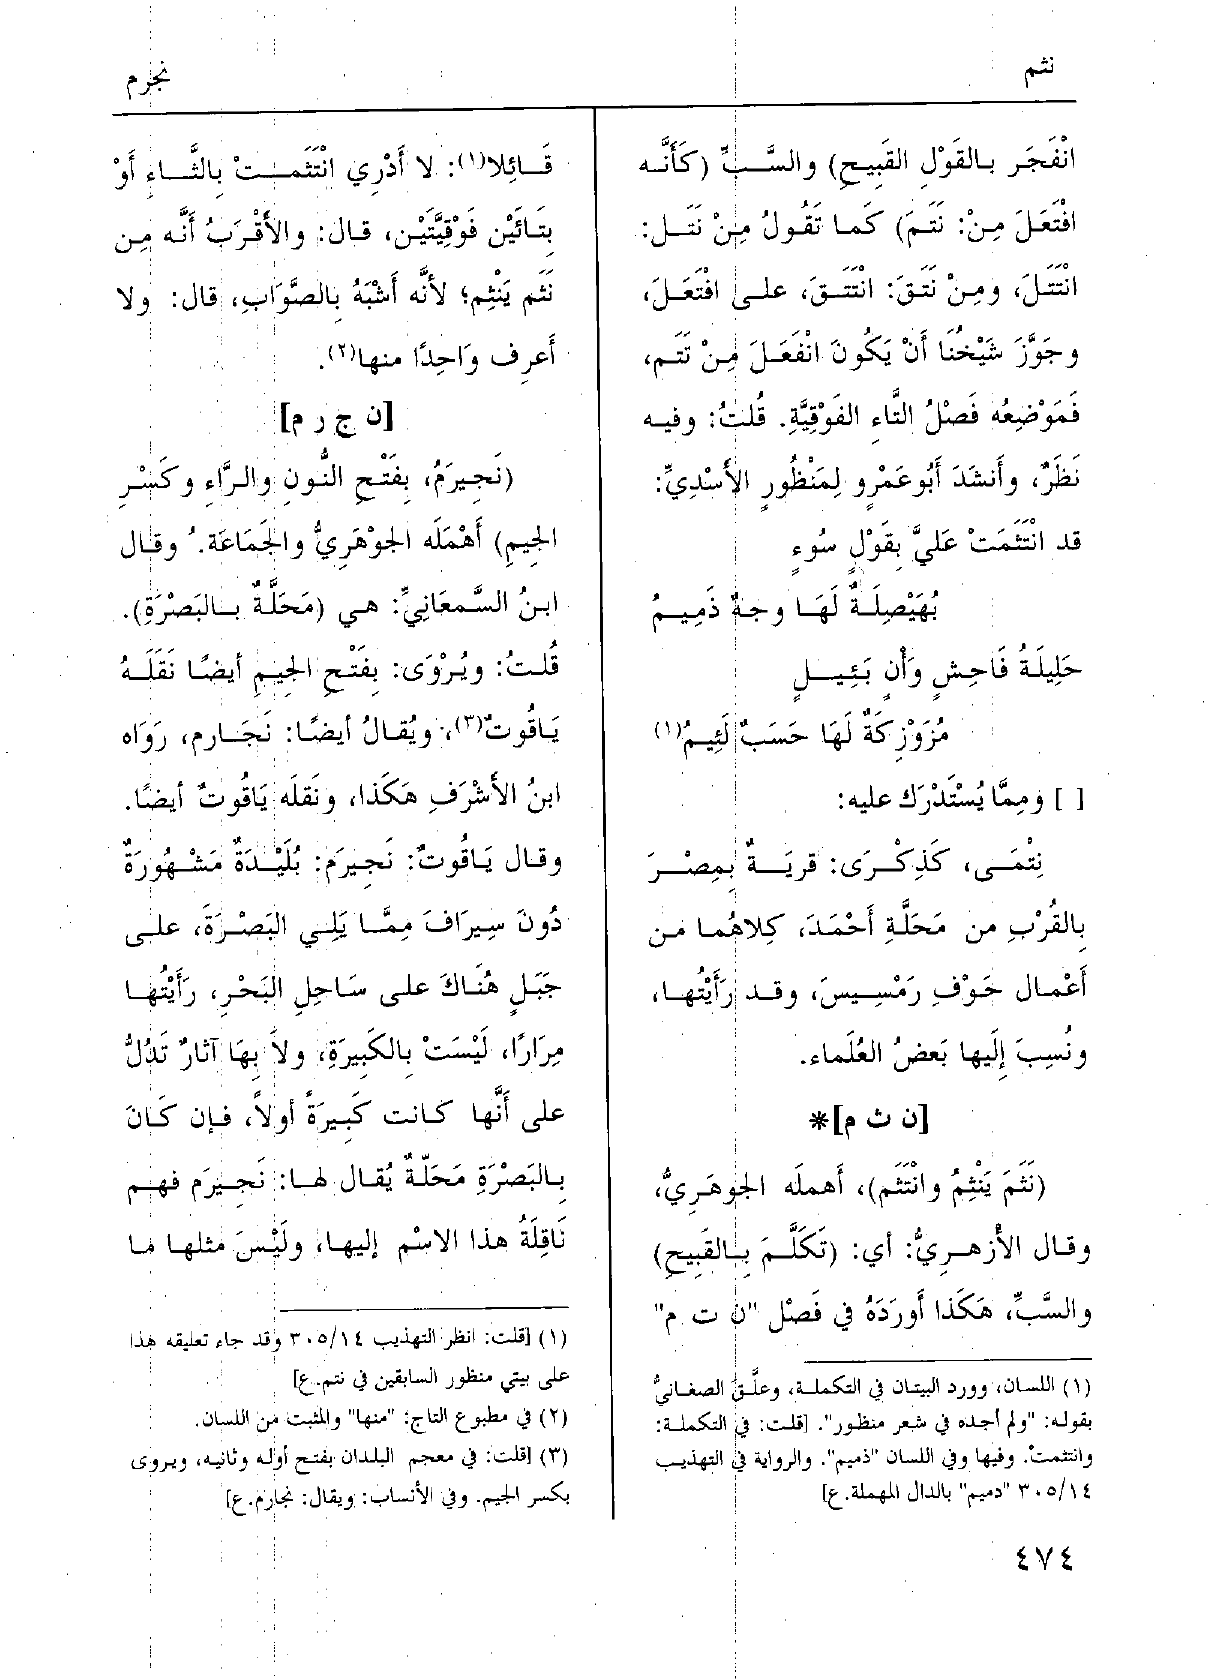 نثم
نجرم
انْفَجَر بالقَوْلِ القَبِيحِ) والسَّبِّ (كَأَنَّه
افْتَعَلَ مِنْ: نَتَمَ) كَما تَقُولُ مِنْ نَتَل:
انْتَتَلَ، ومِنْ نَتَقَ: انْتَتَقَ، على افْتَعَلَ،
وجَوَّزَ شَيْخُنَا أَنْ يَكُونَ انْفَعَلَ مِنْ تَتَم،
فَمَوْضِعُه فَصْلُ التَّاءِ الفَوْقِيَّةِ. قُلتُ: وفيه
نَظَرٌ، وأَنشَدَ أَبُو عَمْرٍو لِمَنْظُورٍ الأَسْدِيِّ:
قد انْتَثَمَتْ عَلَيَّ بِقَوْلِ سُوءٍ
بُهَيْصِلَةٌ لَهَا وجهٌ ذَمِيمُ
حَلِيلَةُ فَاحِشٍ وَأْنٍ بَئِيلٍ
مُزَوْزِكَةٌ لَهَا حَسَبٌ لَئِيمُ(١)
[ ] ومِمَّا يُسْتَدْرَك عليه:
نِتْمَى، كَذِكْرَى: قريَةٌ بِمِصْرَ
بالقُرْبِ من مَحَلَّةِ أَحْمَدَ، كِلاهُما من
أَعْمال حَوْفِ رَمْسِيسَ، وقد رَأَيْتُها،
ونُسِبَ إِلَيها بَعضُ العُلَماء.
[ن ث م]*
(نَثَمَ يَنْثِمُ وانْتَثَم)، أَهملَه الجَوهَرِيُّ،
وقال الأَزهرِيُّ: أي: (تَكَلَّمَ بِالقَبِيحِ)
والسَّبِّ، هَكَذا أَورَدَهُ في فَصْل "ن ت م"
(١) اللسان، وورد البيتان في التكملة، وعلَّق الصغانيُّ
بقوله: "ولم أجده في شعر منظور". [قلت: في التكملة:
وانتثمتْ. وفيها وفي اللسان "ذميم". والرواية في التهذيب
٣٠٥/١٤ "دميم" بالدال المهملة.ع]
قَائِلا(١): لا أَدْرِي انْتَثَمَتْ بِالثَّاءِ أَوْ
بِتَائَيْن فَوْقِيَّتَيْن، قال: والأَقْرَبُ أَنَّه مِن
نَثَم يَنْثِم؛ لأَنَّه أَشْبَهُ بِالصَّوَابِ، قال: ولا
أَعرِف وَاحِدًا منها(٢).
[ن ج ر م]
(نَجِيرَمُ، بِفَتْحِ النُّونِ والرَّاءِ وكَسْرِ
الجِيمِ) أَهْمَلَه الجَوْهَرِيُّ والجَمَاعَة. وقال
ابنُ السَّمعَانِيِّ: هي (مَحَلَّةٌ بالبَصْرَةِ).
قُلتُ: ويُرْوَى: بِفَتْحِ الجِيمِ أيضًا نَقَلَهُ
يَاقُوتٌ(٣)، ويُقالُ أيضًا: نَجَارم، رَوَاه
ابنُ الأَشْرَفِ هَكَذا، ونَقلَه يَاقُوتٌ أيضًا.
وقال يَاقُوتٌ: نَجِيرَم: بُلَيْدَةٌ مَشْهُورَةٌ
دُونَ سِيرَافَ مِمَّا يَلِي البَصْرَةَ، على
جَبَلٍ هُنَاكَ على سَاحِلِ البَحْرِ، رَأَيْتُها
مِرَارًا، لَيْسَتْ بِالكَبِيرَةِ، ولاَ بِهَا آثارٌ تَدُلُّ
على أَنَّها كانت كَبِيرَةً أولاً، فإن كَانَ
بِالبَصْرَةِ مَحَلَّةٌ يُقال لها: نَجِيرَم فهم
نَاقِلَةُ هذا الاسْم إليها، ولَيْسَ مثلها ما
(١) [قلت: انظر التهذيب ٣٠٥/١٤ وقد جاء تعليقه هذا
على بيتي منظور السابقين في نتم.ع]
(٢) في مطبوع التاج: "منها" والمثبت من اللسان.
(٣) [قلت: في معجم البلدان بفتح أوله وثانيه، ويروى
بكسر الجيم. وفي الأنساب: ويقال: نجارم.ع]
٤٧٤